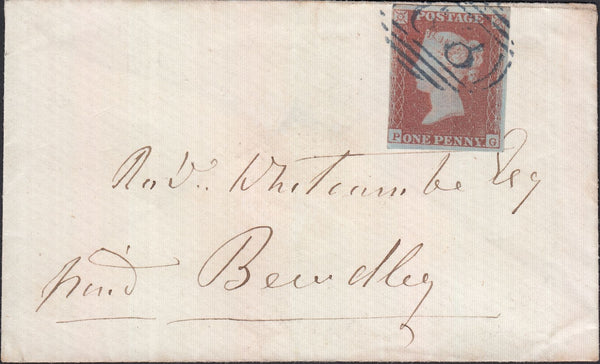 POSTAGE
8
P ONE PENNY G
Rob.t Whitcombe Esq
paid Bewdley